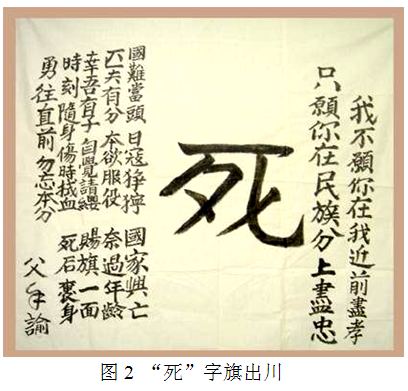 我不願你在我近前盡孝
只願你在民族分上盡忠
死
國難當頭 日寇猙獰 國家興亡
匹夫有分 本欲服役 奈過年齡
幸吾有子 自覺請纓 賜旗一面
時刻隨身 傷時拭血 死后裹身
勇往直前 勿忘本分
父手諭
图 2 “死”字旗出川